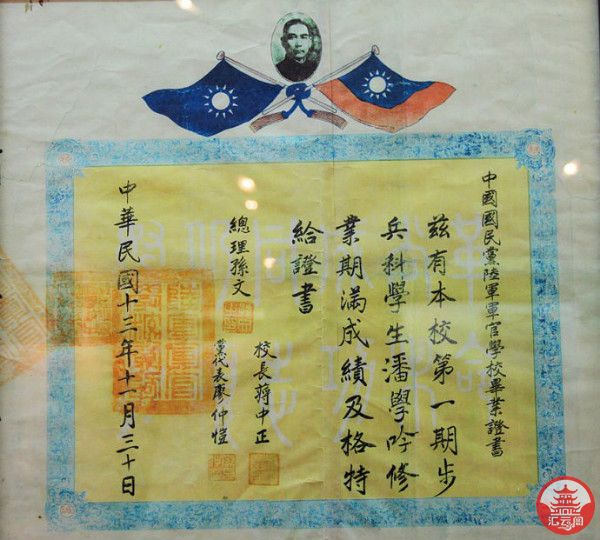 中國國民黨陸軍軍官學校畢業證書
茲有本校第一期步
兵科學生潘學吟修
業期滿成績及格特
給證書
總理孫文
校長蔣中正
黨代表廖仲愷
中華民國十三年十一月三十日
汇云阁